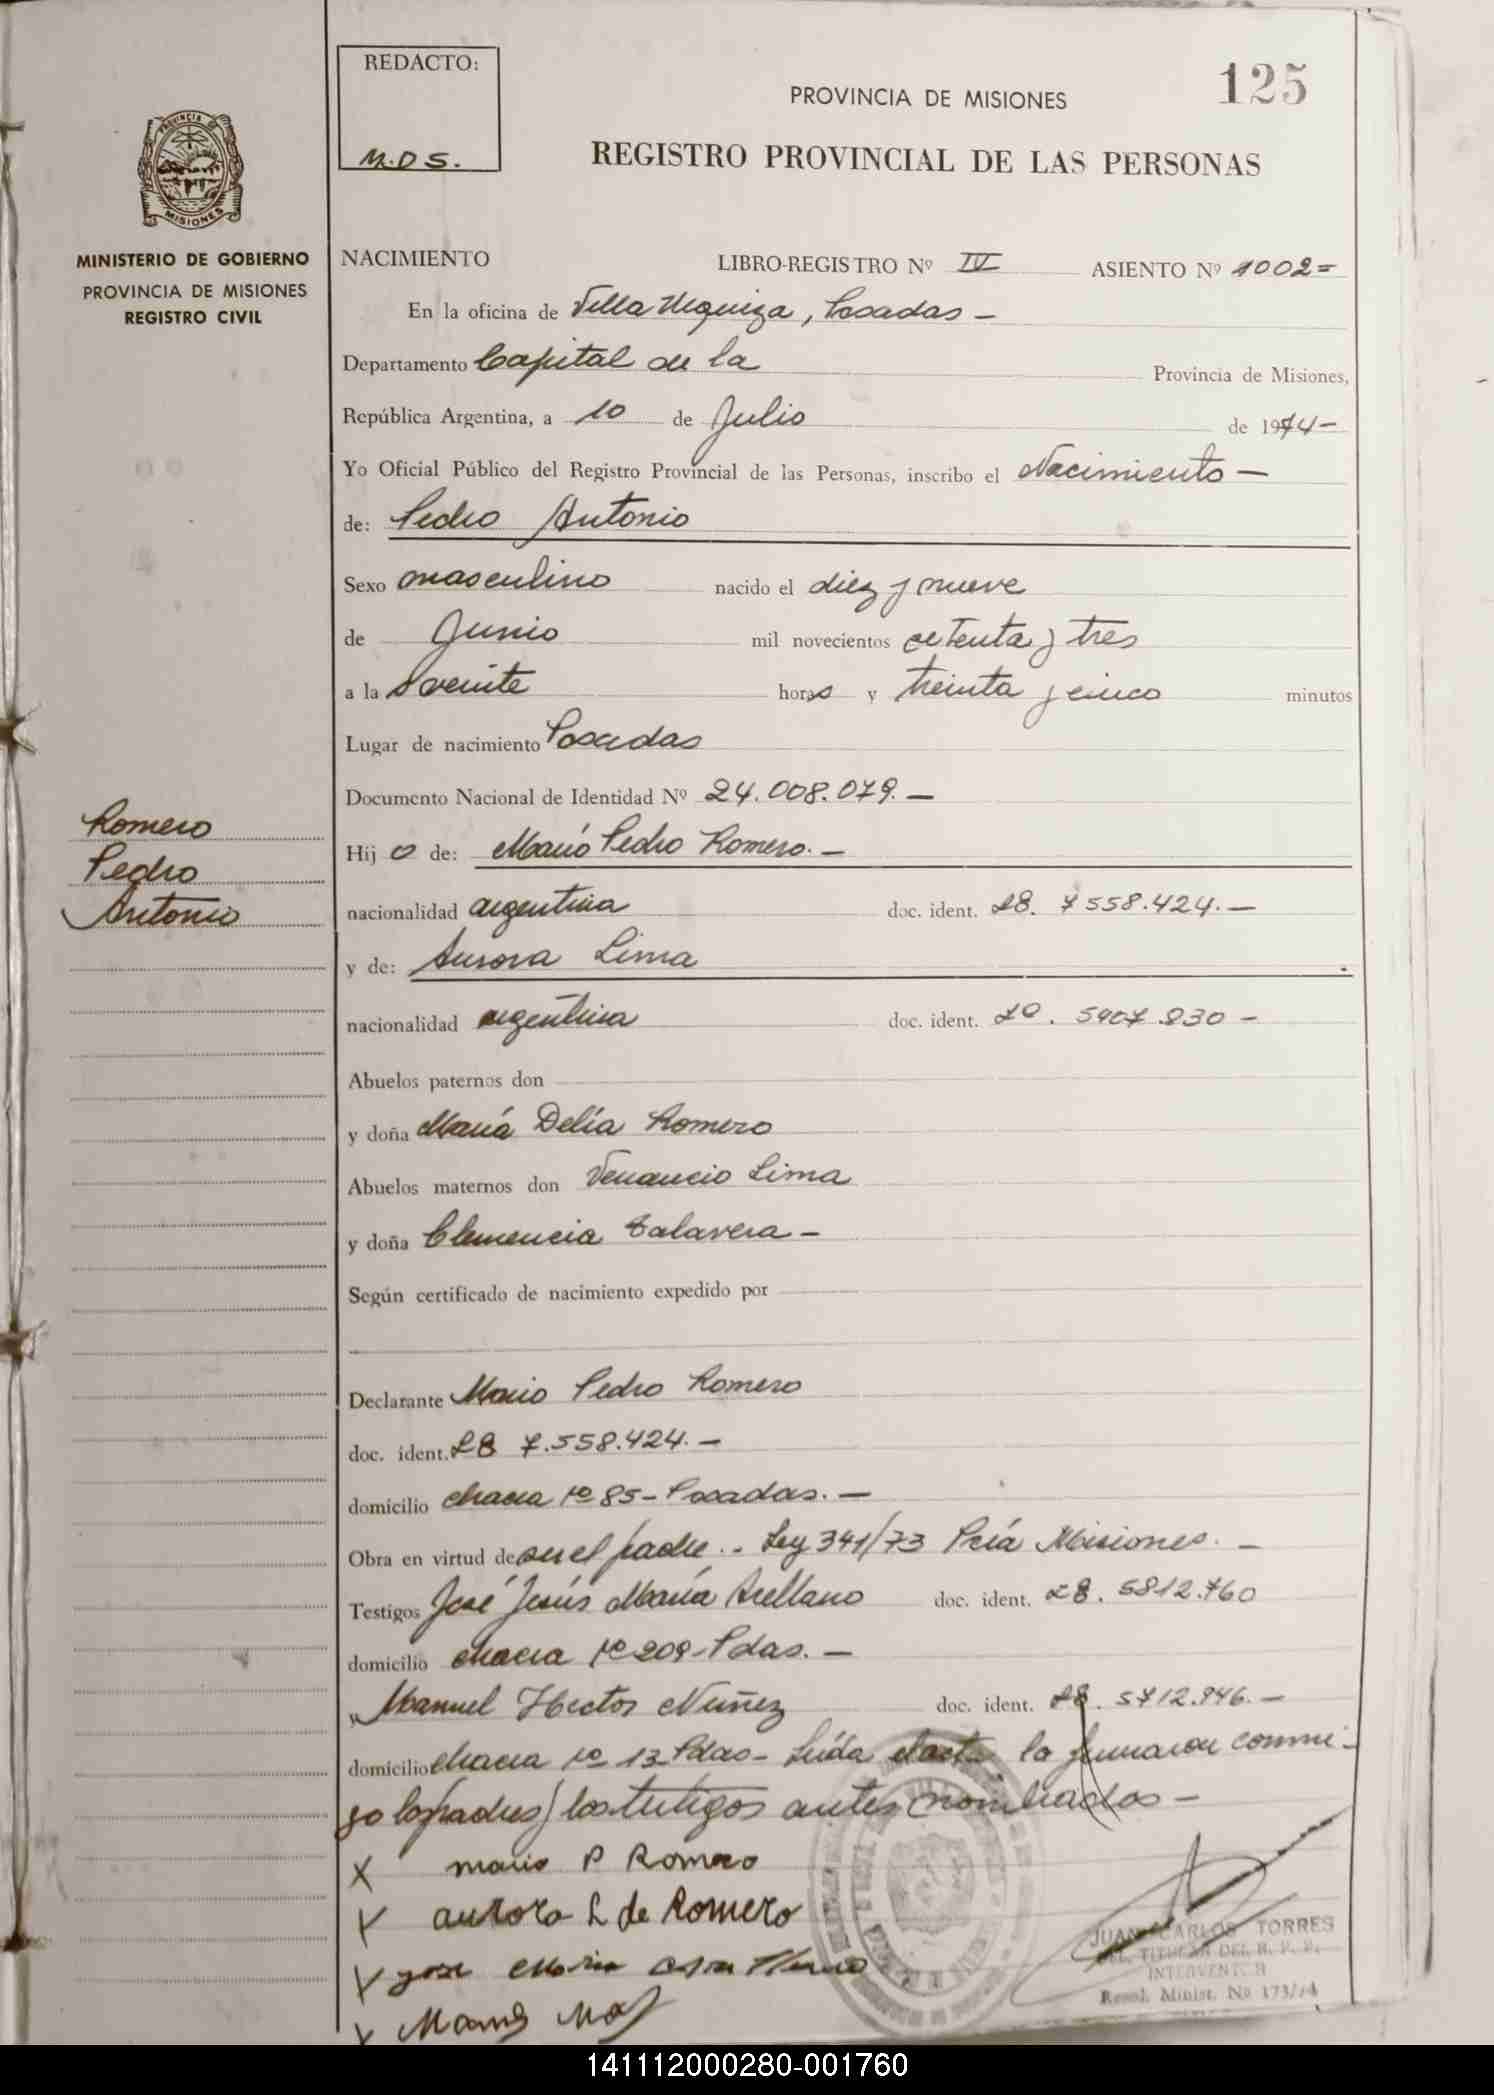 REDACTO:
M.D.S.
125
PROVINCIA DE MISIONES
REGISTRO PROVINCIAL DE LAS PERSONAS
PROVINCIA DE
MISIONES
MINISTERIO DE GOBIERNO
PROVINCIA DE MISIONES
REGISTRO CIVIL
NACIMIENTO LIBRO-REGISTRO Nº IV ASIENTO Nº 1002=
En la oficina de Villa Urquiza, Posadas -
Departamento Capital de la Provincia de Misiones,
República Argentina, a 10 de Julio de 1974-
Yo Oficial Público del Registro Provincial de las Personas, inscribo el Nacimiento -
de: Pedro Antonio
Sexo masculino nacido el diez y nueve
de Junio mil novecientos setenta y tres
a la s veinte horas y treinta y cinco minutos
Lugar de nacimiento Posadas
Documento Nacional de Identidad Nº 24.008.079.-
Romero
Pedro
Antonio
Hij o de: Mario Pedro Romero.-
nacionalidad argentina doc. ident. L8. 7558.424.-
y de: Aurora Lima
nacionalidad argentina doc. ident.
Abuelos paternos don
y doña María Delia Romero
Abuelos maternos don Venancio Lima
y doña Clemencia Talavera -
Según certificado de nacimiento expedido por
Declarante Mario Pedro Romero
doc. ident. L8 7.558.424.-
domicilio chacra Nº 85 - Posadas.-
Obra en virtud de ser el padre.- Ley 341/73 Pcia Misiones.-
Testigos José Jesús María Arellano doc. ident. L8. 5812.760
domicilio chacra Nº 209-Pdas.-
y Manuel Hector Nuñez doc. ident. L8. 5712.946.-
domicilio chacra Nº 13 Pdas- Leída el acta, la firmaron conmi-
go los padres y los testigos antes nombrados -
X mario P Romero
X aurora L de Romero
X jose Maria
X
JUAN CARLOS TORRES
TITULAR DEL R. P. P.
INTERVENTOR
Resol. Minist. No 173/74
141112000280-001760